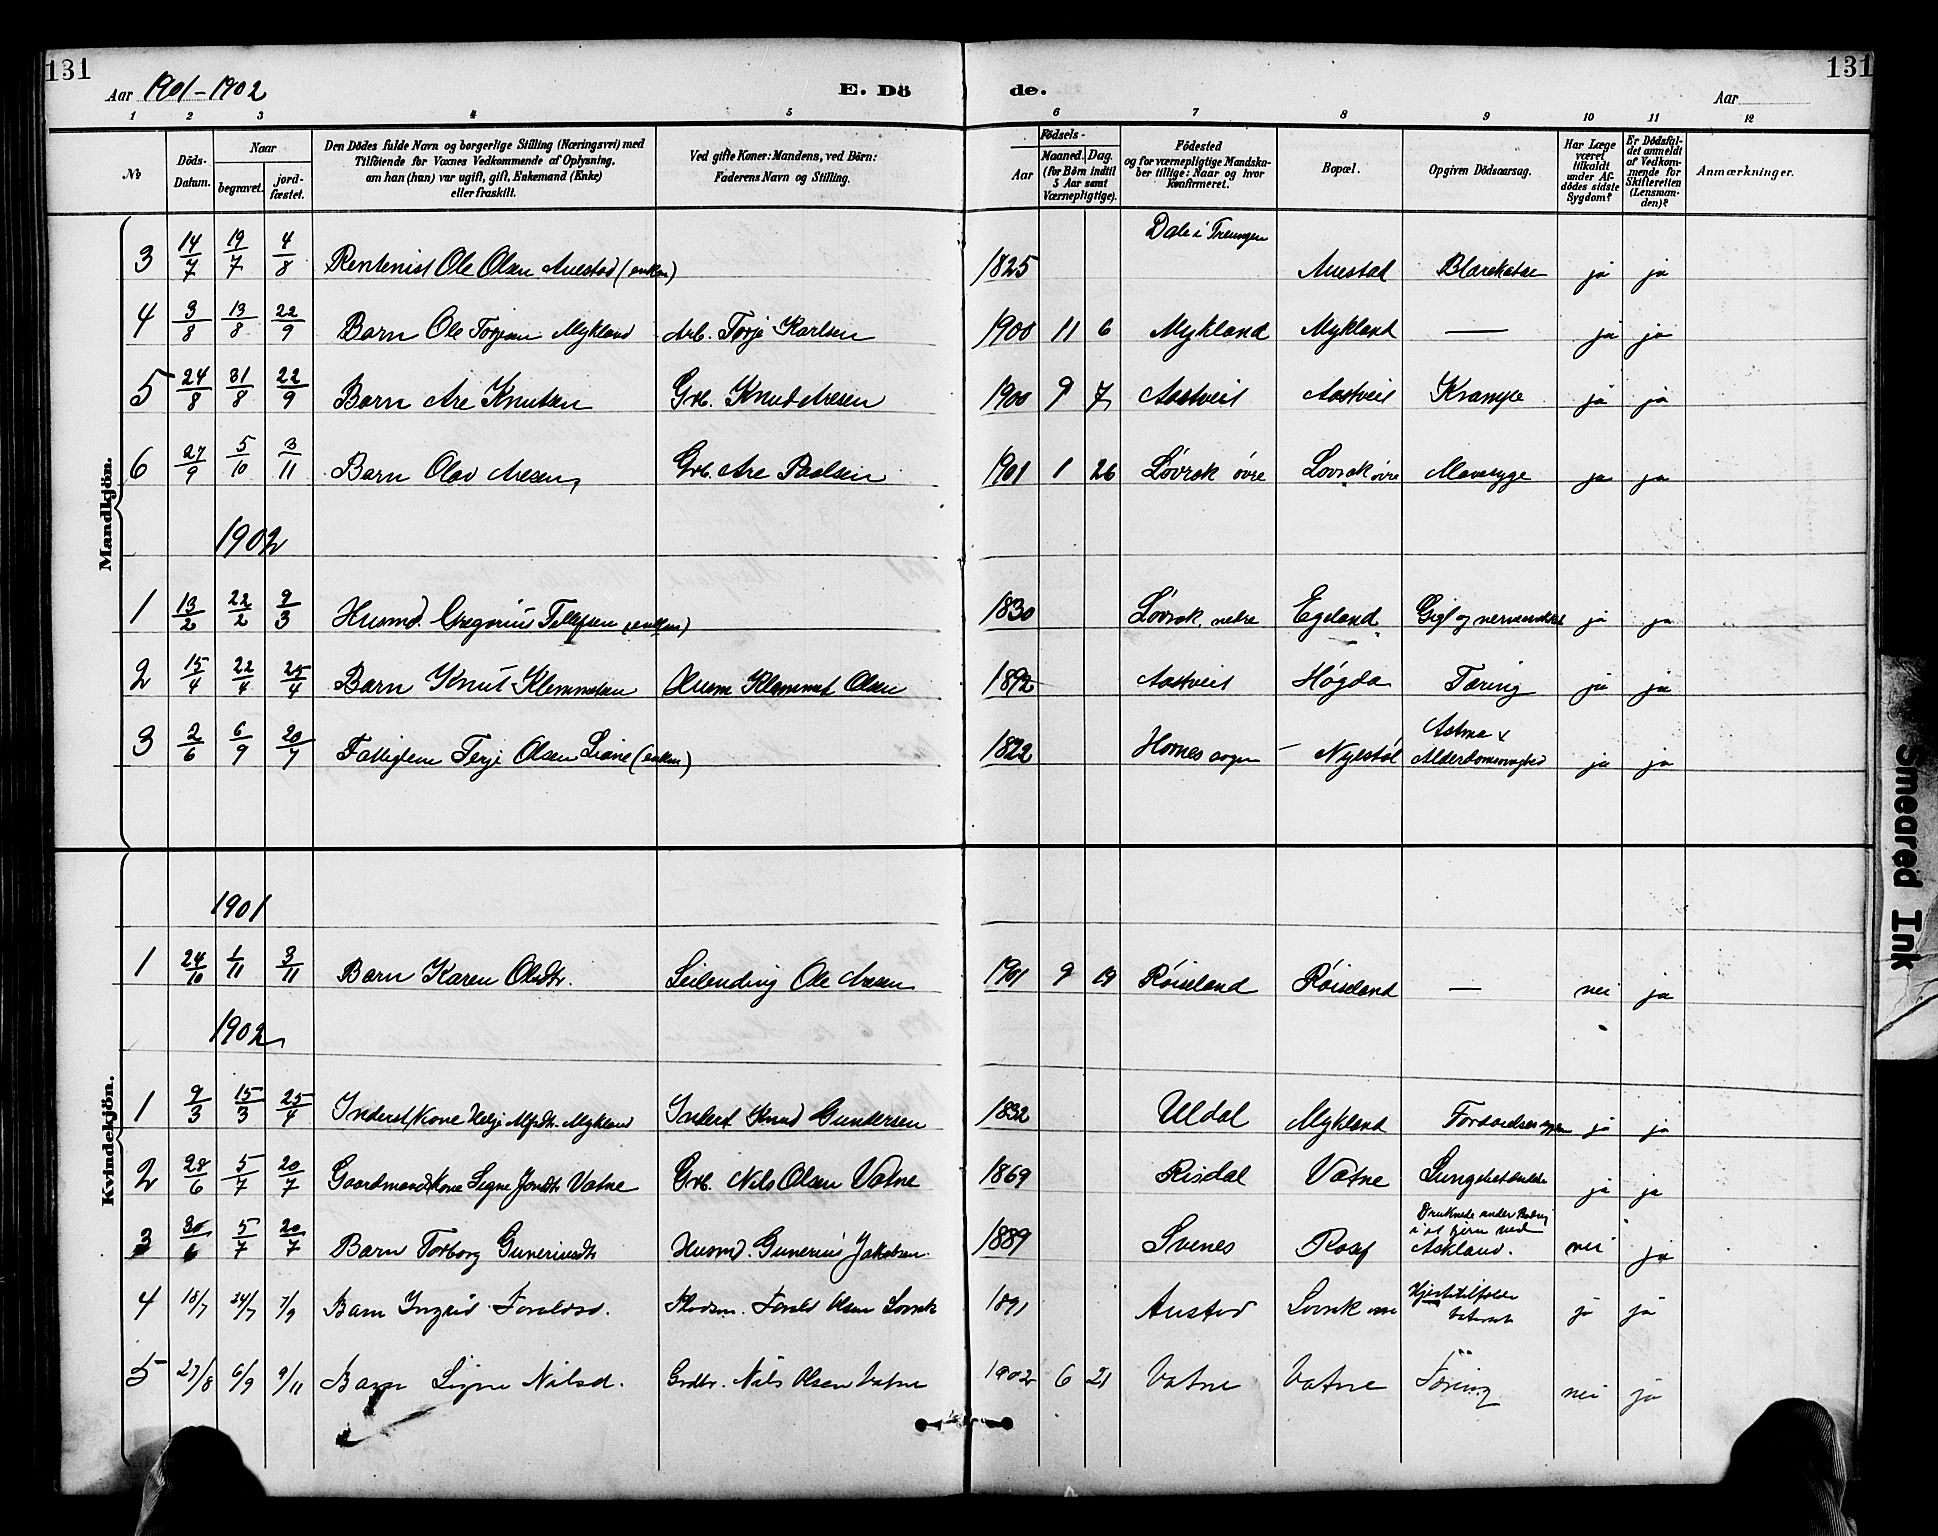 131
131
Aar 1901-1902
E. Dö de.
Aar
1 2 3 4 5 6 7 8 9 10 11 12
No
Döds-Datum.
Naar
begravet.
jordfæstet.
Den Dödes fulde Navn og borgerlige Stilling (Næringsvei) med
Tilföiende for Voxnes Vedkommende af Oplysning,
om han (hun) var ugift, gift, Enkemand (Enke)
eller fraskilt.
Ved gifte Koner: Mandens, ved Börn:
Faderens Navn og Stilling.
Födsels-
Aar
Maaned. Dag.
(for Börn indtil
5 Aar samt
Værnepligtige).
Födested
og for værnepligtige Mandska-
ber tillige: Naar og hvor
konfirmeret.
Bopæl.
Opgiven Dödsaarsag.
Har Læge
været
tilkaldt
under Af-
dödes sidste
Sygdom?
Er Dödsfal-
det anmeldt
af Vedkom-
mende for
Skifteretten
(Lensman-
den)?
Anmærkninger.
Mandkjön.
3 14/7 19/7 4/8 Rentenist Ole Olsen Auestad (enkem) 1825 Dale i Auestad Blærekatar ja ja
4 3/8 13/8 22/9 Barn Ole Torjesen Mykland Arb. Torje Karlsen 1900 11 6 Mykland Mykland — ja ja
5 24/8 31/8 22/9 Barn Are Knutsen Grb. Knud Aresen 1900 9 7 Aastveit Aastveit Krampe ja ja
6 27/9 5/10 3/11 Barn Olav Aresen Grb. Are Paalsen 1901 1 26 Løvrak øvre Løvrak øvre Mavesyge ja ja
1902
1 13/2 22/2 9/3 Husmd. Gregorius Tellefsen (enkem) 1830 Løvrak, nedre Egeland Gigt og ja ja
2 15/4 22/4 25/4 Barn Knut Klemmetsen Husm Klemmet Olsen 1892 Aastveit Høgda Tæring ja ja
3 2/6 6/9 20/7 Fattiglem Terje Olsen (enkem) 1822 Hornes sogn — Nylestøl Astma & Alderdomssvaghed ja ja
Kvindekjön.
1901
1 24/10 1/11 3/11 Barn Karen Olsdtr. Leilending Ole Aresen 1901 9 19 Røiseland Røiseland — nei ja
1902
1 9/3 15/3 25/4 Inderst Kone Helje Mykland Inderst Knud Gundersen 1832 Uldal Mykland ja ja
2 28/6 5/7 20/7 Gaardmandskone Signe Jonsdtr Vatne Grb. Nils Olsen Vatne 1869 Risdal Vatne Lungebetændelse ja ja
3 30/6 5/7 20/7 Barn Torborg Guneriusdtr Husmd. Gunerius Jakobsen 1889 Svenes Druknede under Badning
i et tjern ved
Askland. nei ja
4 18/7 24/7 7/9 Barn Ingrid Toraldsd. Pladsm. Torald Olsen Lovrak 1891 Austad Lovrak øvre ja ja
5 27/8 6/9 9/11 Barn Signe Nilsd. Grdbr. Nils Olsen Vatne 1902 6 21 Vatne Vatne Tæring nei ja
Smeared Ink